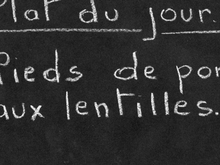 Plat du jour
Pieds de por
aux lentilles.